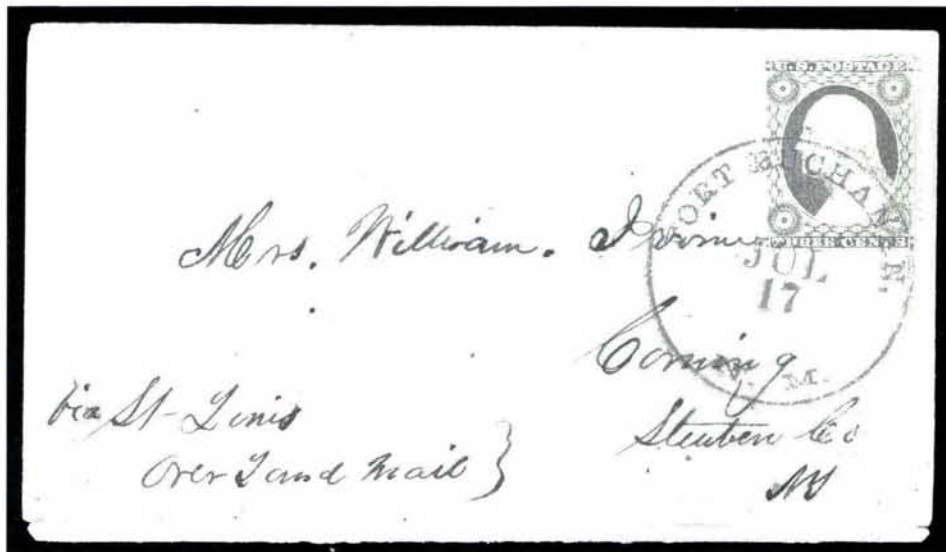 U.S. POSTAGE
THREE CENTS
FORT BUCHANAN
JUL
17
N. M.
Mrs. William. Irvine
Corning
Steuben Co
NY
via St-Louis
Over Land Mail }